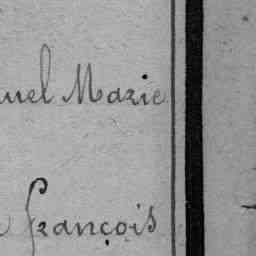 uel Marie
François